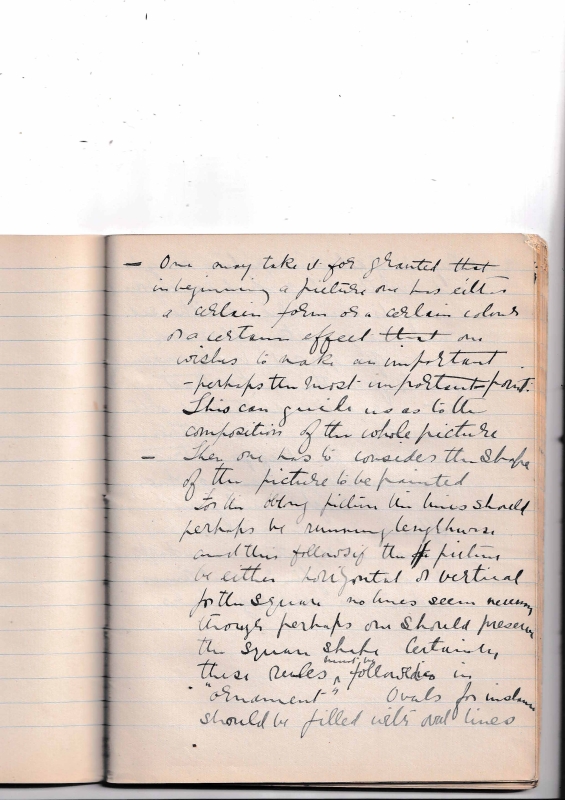 — One may take it for granted that
in beginning a picture one has either
a certain form or a certain colour
or a certain effect that one
wishes to make an important
- perhaps the most important point.
This can guide us as to the
composition of the whole picture
— Then one has to consider the shape
of the picture to be painted
For the oblong picture the lines should
perhaps be running lengthwise
and this follows if the picture
be either horizontal or vertical
for the square no lines seem necessary
though perhaps one should preserve
the square shape Certainly
these rules must be followed in
"ornament" Ovals for instance
should be filled with oval lines